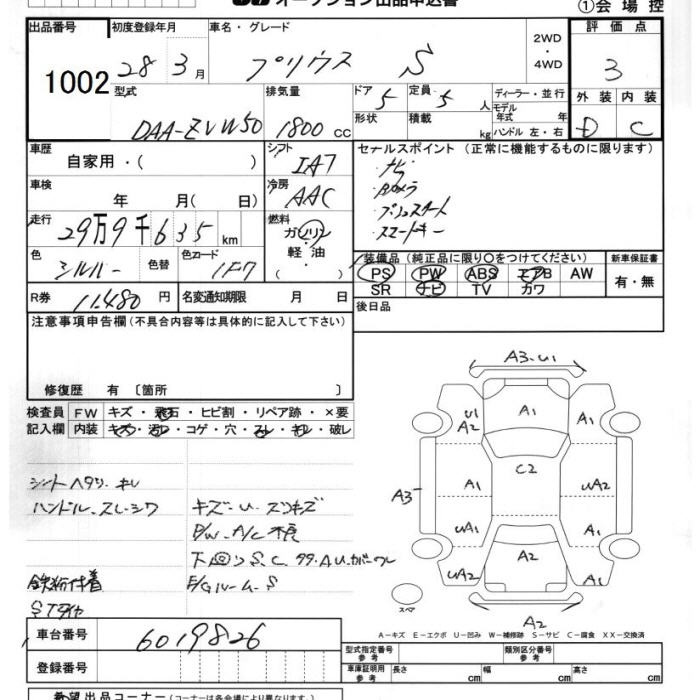 オークション出品申込書
①会場控
出品番号 初度登録年月 車名・グレード 2WD・4WD 評価点
1002 28年3月 プリウス S 3
型式 排気量 ドア 定員 ディーラー・並行 外装 内装
DAA-ZVW50 1800cc 5 5人 モデル年式 年 D C
形状 積載 kg ハンドル 左・右
車歴 シフト セールスポイント (正常に機能するものに限ります)
自家用・( ) IA7 ・ナビ
車検 冷房 ・カメラ
年 月( 日) AAC ・プッシュスタート
走行 燃料 ・スマートキー
29万9千635km ガソリン
色 色替 色コード 軽・油 装備品 (純正品に限り○をつけてください) 新車保証書
シルバー 1F7 PS PW ABS エアB AW 有・無
R券 名変通知期限 SR ナビ TV カワ
11,480円 月 日 後日品
注意事項申告欄 (不具合内容等は具体的に記入して下さい)
修復歴 有 〔箇所 〕
検査員 FW キズ・飛石・ヒビ割・リペア跡・×要
記入欄 内装 キズ・汚レ・コゲ・穴・スレ・キレ・破レ
シートヘタリ、キレ
ハンドル、スレ・シワ キズ・U・スリキズ
P/W、A/C 不良
下回りS、C
鉄粉付着 E/Gルーム、S
Sタイヤ
A3、U1
U1 A2 A1 A1
C2
A3 A1 UA2
UA1 A1
UA2 A2 A1
スペア A2
A-キズ E-エクボ U-凹み W-補修跡 S-サビ C-腐食 XX-交換済
車台番号 6019826
型式指定番号 参考 類別区分番号 参考
登録番号 車庫証明用 参考 長さ cm 幅 cm 高さ cm
希望出品コーナー (コーナーは各会場により異なります)